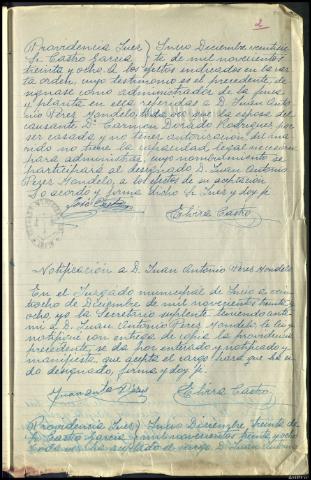 2
Providencia Juez } Sneo Diciembre veintisie
Sr Castro García } te de mil novecientos
treinta y ocho. A los efectos indicados en la car
ta orden, cuyo testimonio es el precedente, de
signase como administrador de la finca
y planta en ella referidas a D. Juan Anto
nio Pérez Mandelo, toda vez que la esposa del
causante Dª Carmen Dorado Rodríguez por
ser casada, y no tener autorización del ma
rido no tiene la capacidad legal necesaria
para administrar, cuyo nombramiento se
participará al designado D. Juan Antonio
Pérez Mandelo, a los efectos de su aceptación
Lo acordó y firma dicho Sr Juez y doy fe.
José Castro
Elvira Castro
Notificación a D. Juan Antonio Pérez Mandelo
En el Juzgado municipal de Sneo a vein
tiocho de Diciembre de mil novecientos treinta y
ocho, yo la Secretario suplente teniendo ante
mi a D. Juan Antonio Pérez Mandelo le ley y
notifiqué con entrega de copia la providencia
precedente, se da por enterado y notificado y
manifiesta, que acepta el cargo para que ha si
do designado, firma y doy fe.
Juan Antº Pérez
Elvira Castro
Providencia Juez } Sneo Diciembre, treinta de
Sr Castro García } mil novecientos treinta y ocho
cargo D. Juan Antonio